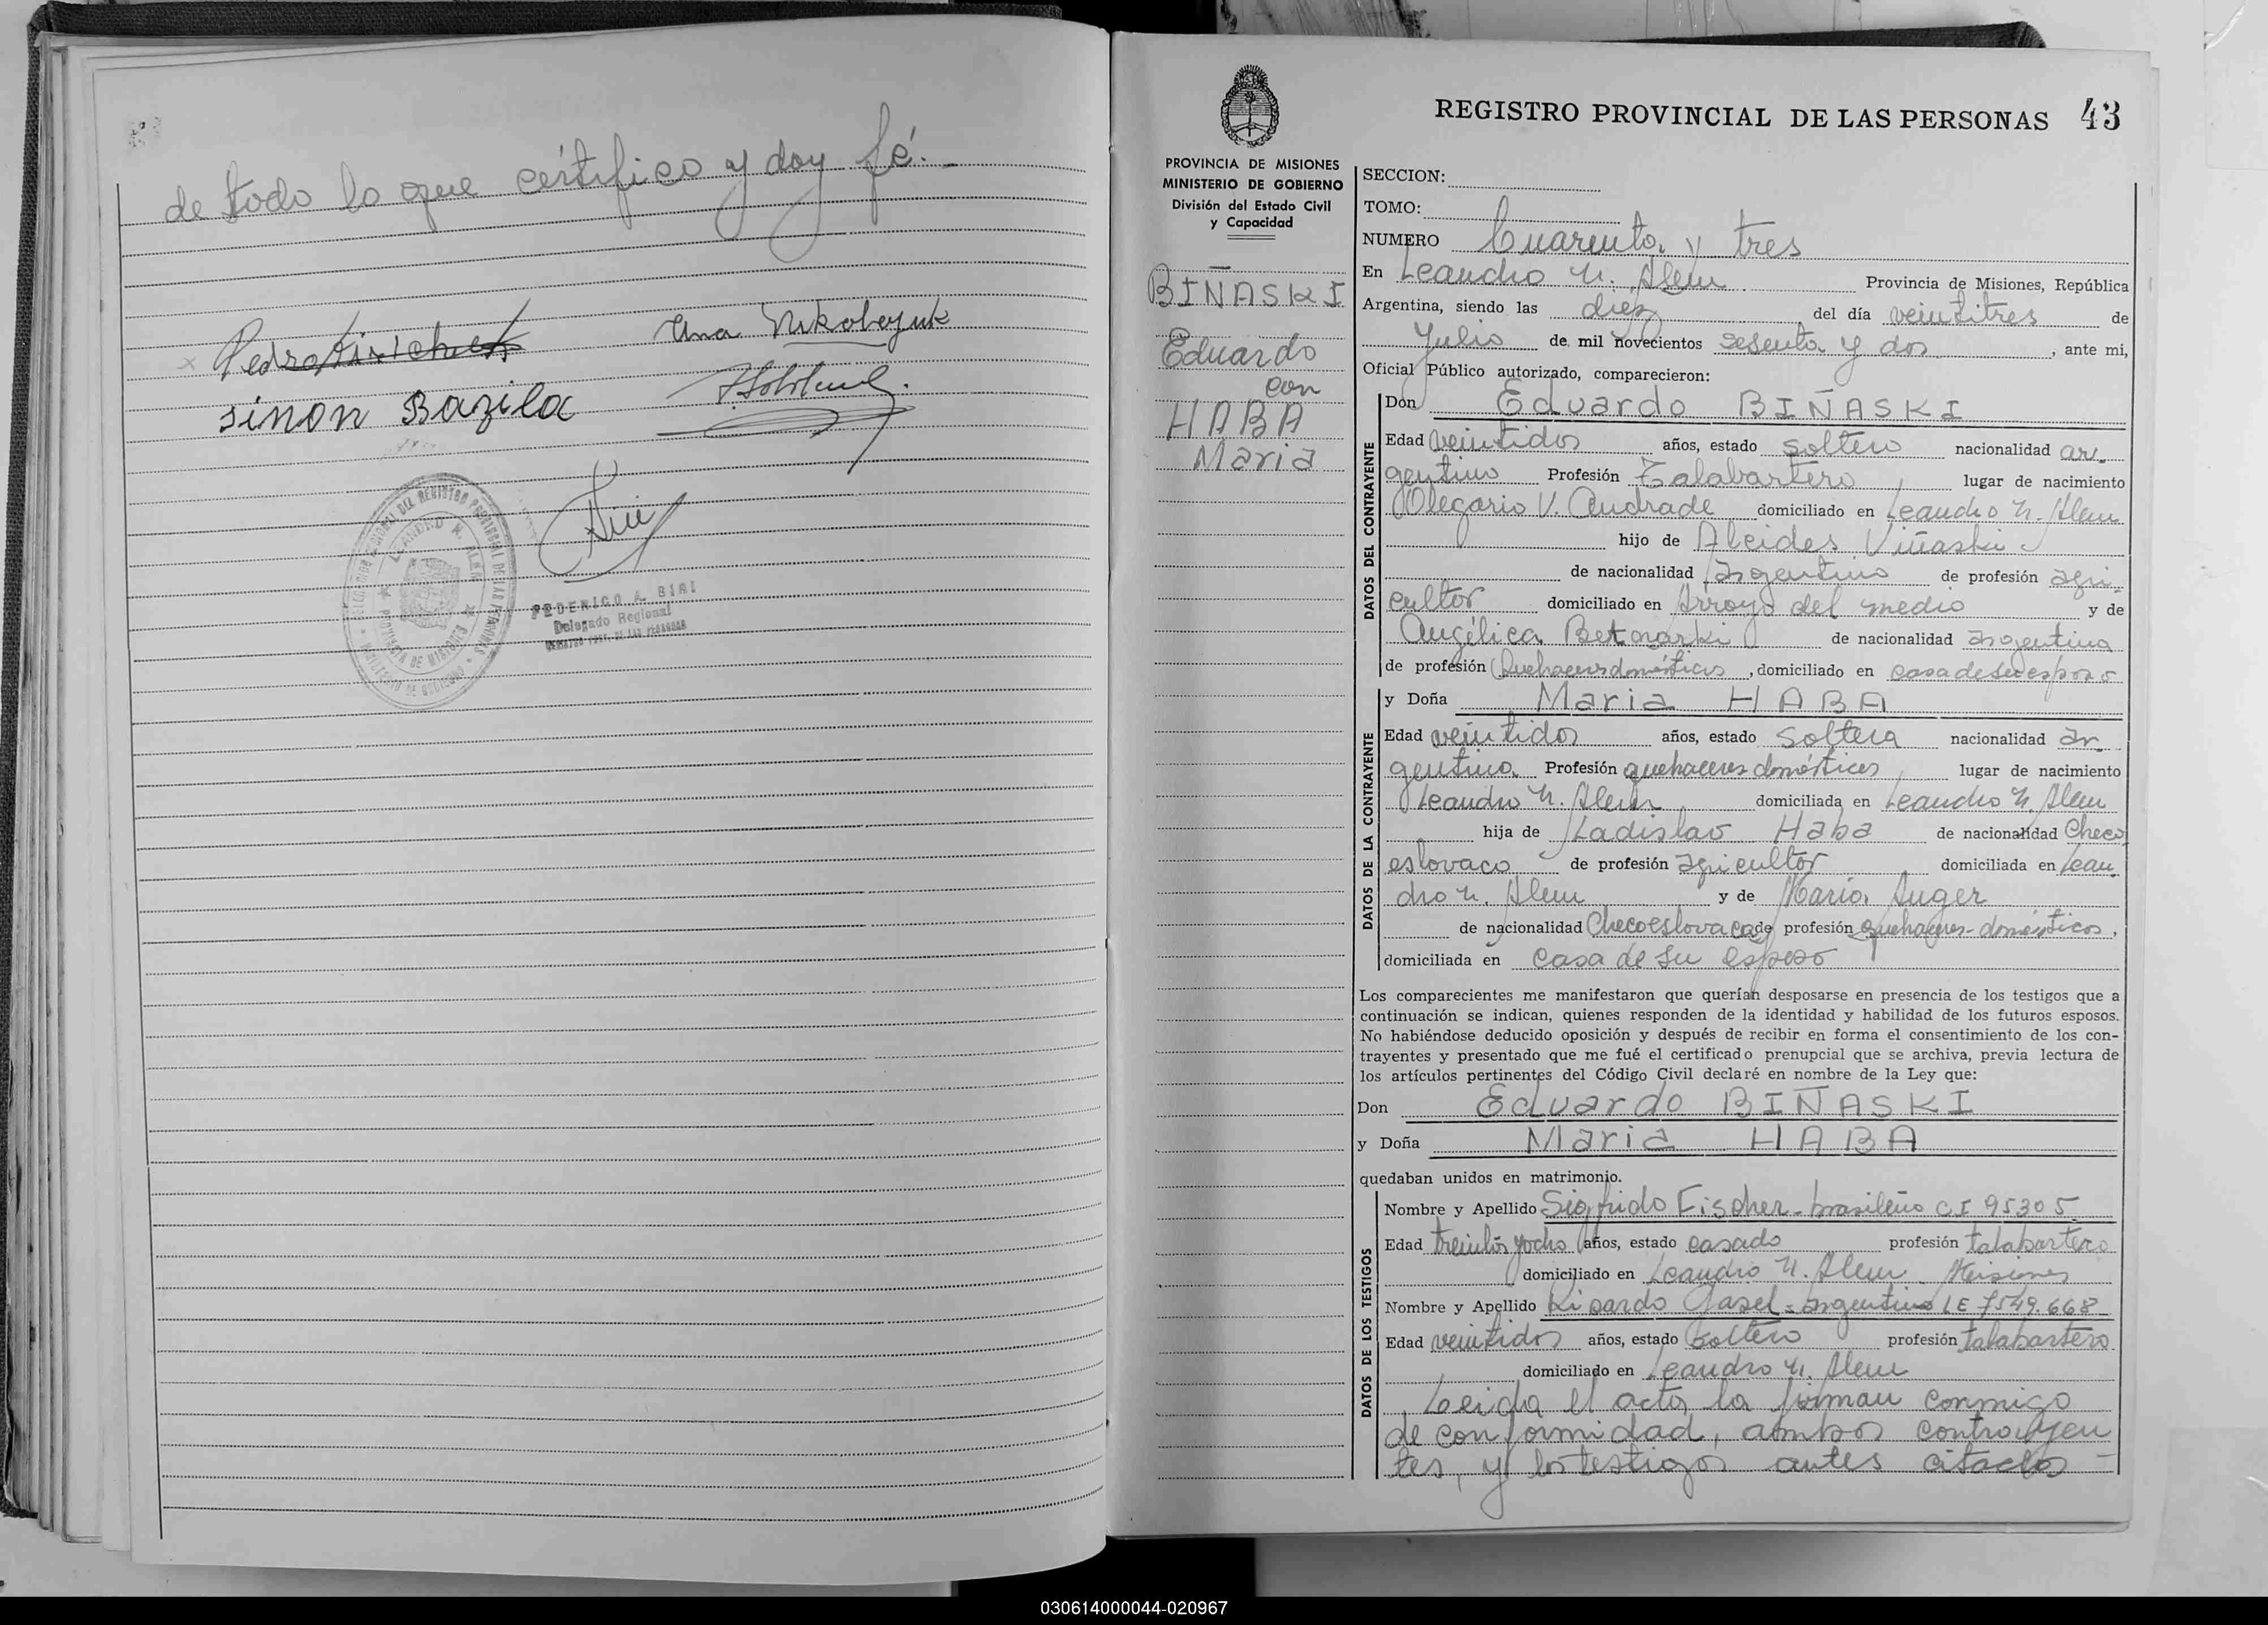 de todo lo que cértifico y doy fé.-
Pedro
Una Nikolayuk
sinon Bazila
LEANDRO N. ALEM
PROVINCIA DE MISIONES
FEDERICO A. BIRI
Delegado Regional
REGISTRO PROVINCIAL DE LAS PERSONAS 43
PROVINCIA DE MISIONES
MINISTERIO DE GOBIERNO
División del Estado Civil
y Capacidad
BIÑASKI
Eduardo
con
HABA
Maria
SECCION:
TOMO:
NUMERO Cuarenta y tres
En Leandro N. Alem Provincia de Misiones, República
Argentina, siendo las diez del día veintitres de
Julio de mil novecientos sesenta y dos, ante mi,
Oficial Público autorizado, comparecieron:
DATOS DEL CONTRAYENTE
Don Eduardo BIÑASKI
Edad veintidos años, estado soltero nacionalidad ar-
gentino Profesión Talabartero, lugar de nacimiento
Olegario V. Andrade domiciliado en Leandro N. Alem
hijo de Alcides Viñaski
de nacionalidad Argentino de profesión agri-
cultor domiciliado en Arroyo del medio y de
Angélica Betnarski de nacionalidad argentina
de profesión Quehaceres domésticos, domiciliado en casa de su esposo
DATOS DE LA CONTRAYENTE
y Doña Maria HABA
Edad veintidos años, estado soltera nacionalidad ar-
gentina Profesión quehaceres domésticos, lugar de nacimiento
Leandro N. Alem domiciliada en Leandro N. Alem
hija de Ladislao Haba de nacionalidad Checo
eslovaco de profesión agricultor domiciliada en Lean-
dro N. Alem y de Maria Auger
de nacionalidad Checoeslovaca de profesión quehaceres-domésticos,
domiciliada en casa de su esposo
Los comparecientes me manifestaron que querían desposarse en presencia de los testigos que a
continuación se indican, quienes responden de la identidad y habilidad de los futuros esposos.
No habiéndose deducido oposición y después de recibir en forma el consentimiento de los con-
trayentes y presentado que me fué el certificado prenupcial que se archiva, previa lectura de
los artículos pertinentes del Código Civil declaré en nombre de la Ley que:
Don Eduardo BIÑASKI
y Doña Maria HABA
quedaban unidos en matrimonio.
DATOS DE LOS TESTIGOS
Nombre y Apellido Sigfrido Fischer-brasileño CI 95305
Edad treinta y ocho años, estado casado profesión talabartero
domiciliado en Leandro N. Alem Misiones
Nombre y Apellido Ricardo Gasel=argentino LE 7549.668
Edad veintidos años, estado soltero profesión talabartero
domiciliado en Leandro N. Alem
Leida el acta la firman conmigo
de conformidad, ambos contrayen
tes, y los testigos antes citados -
030614000044-020967